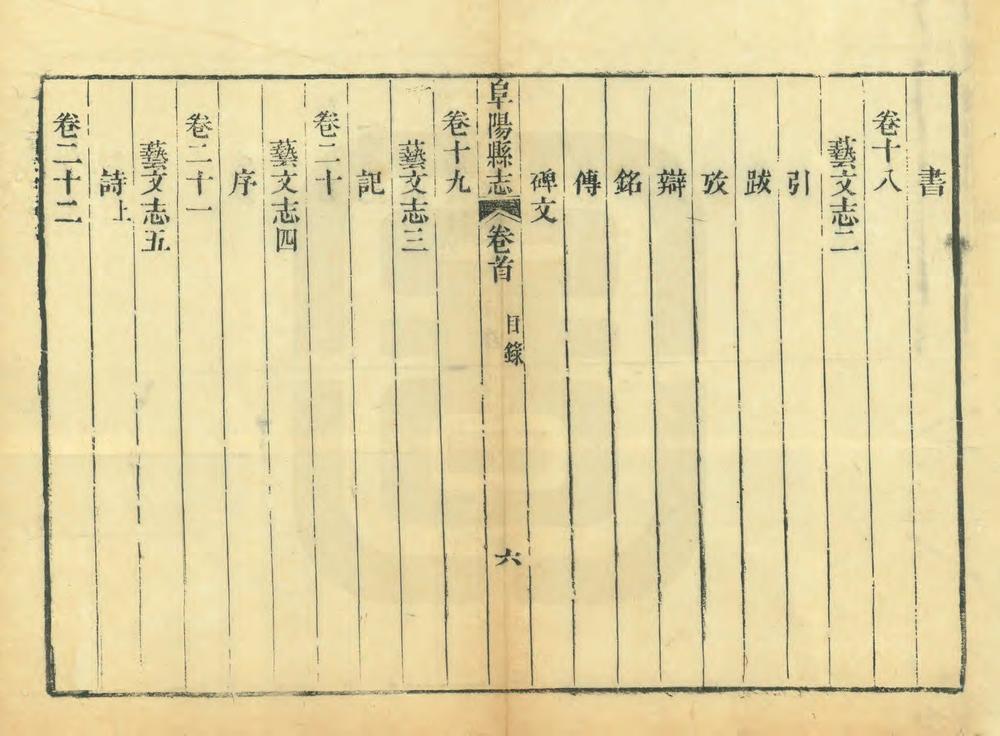 書
卷十八
藝文志二
引
跋
攷
辯
銘
傳
碑文
阜陽縣志 卷首 目錄 六
卷十九
藝文志三
記
卷二十
藝文志四
序
卷二十一
藝文志五
詩上
卷二十二